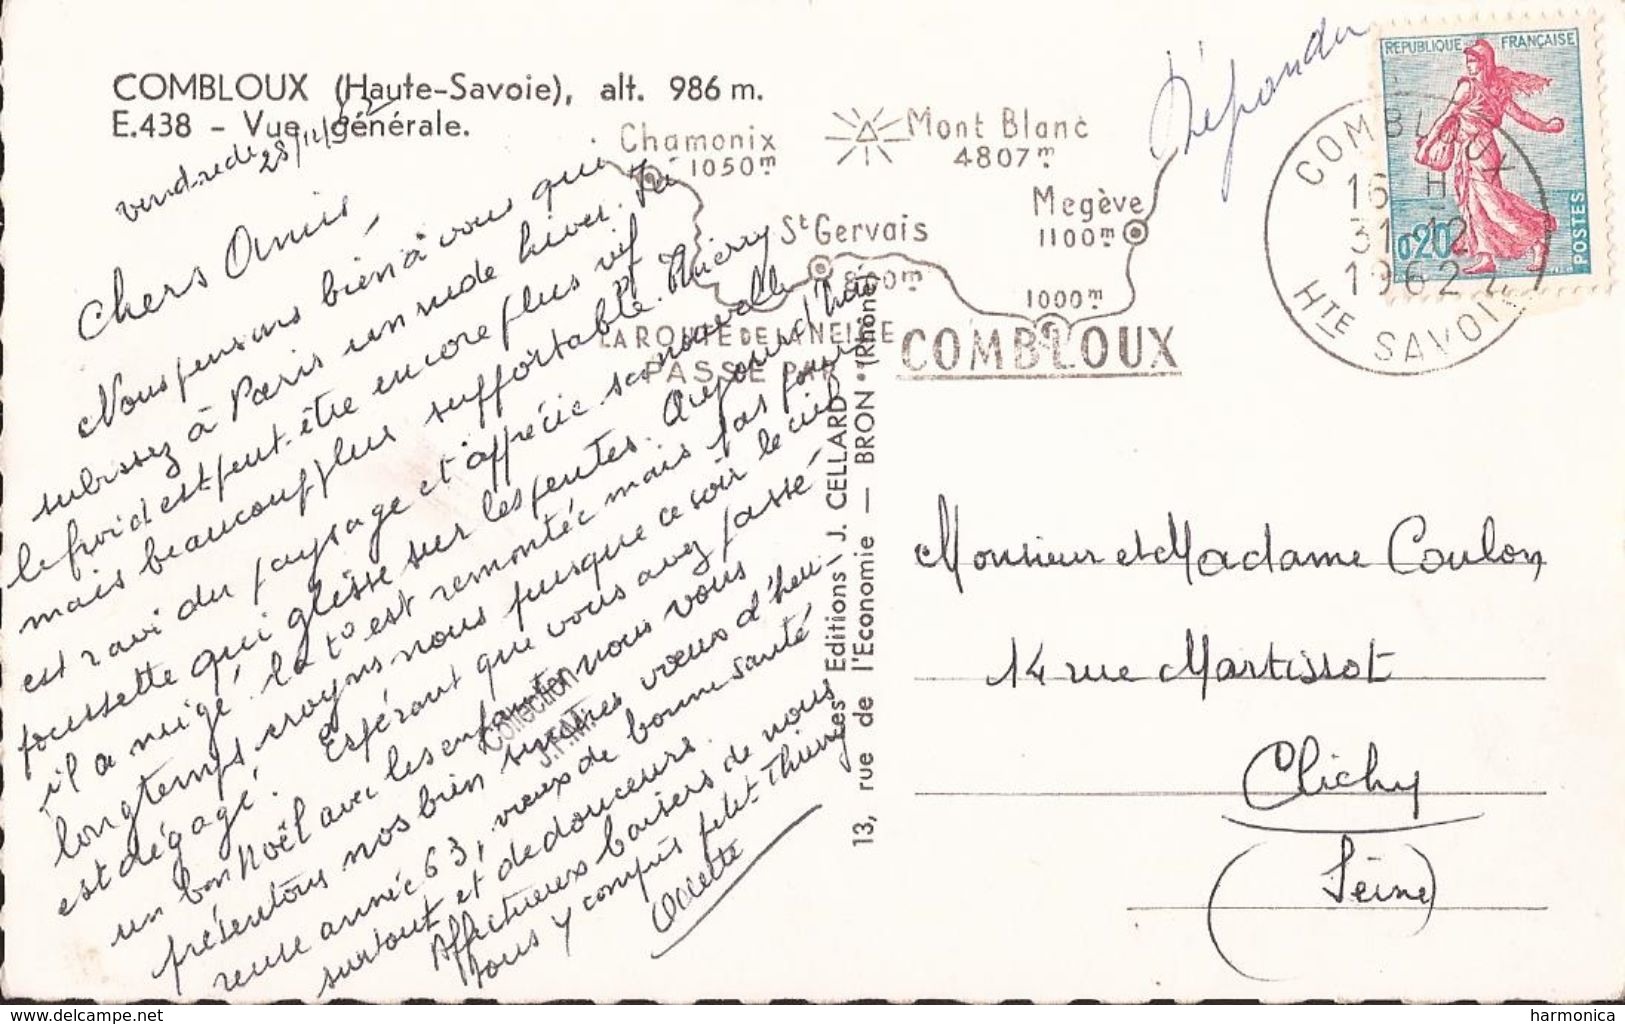 COMBLOUX (Haute-Savoie), alt. 986 m.
E.438 - Vue générale.
vendredi 28/12/62
Chers Amis,
Nous pensons bien à vous qui
subissez à Paris un rude hiver. Ici
le froid est peut-être encore plus vif
mais beaucoup plus supportable. Thierry
est ravi du paysage et apprécie sa nouvelle
poussette qui glisse sur les pentes. Aujourd'hui
il a neigé, la t° est remontée mais pas pour
longtemps croyons nous puisque ce soir le ciel
est dégagé. Espérant que vous avez passé
un bon Noël avec les enfants nous vous
présentons nos bien sincères vœux d'heu-
reuse année 63, vœux de bonne santé
surtout et de douceurs.
Affectueux baisers de nous
tous y compris petit Thierry
Répondu
Chamonix
1050m
Mont Blanc
4807m
St Gervais
800m
Megève
1100m
1000m
LA ROUTE DE LA NEIGE
PASSE PAR
COMBLOUX
REPUBLIQUE FRANÇAISE
0,20
POSTES
COMBLOUX
16 H
31-12
1962
HTE SAVOIE
Editions J. CELLARD
13, rue de l'Economie — BRON (Rhône)
Collection
Monsieur et Madame Coulon
14 rue Martissot
Clichy
(Seine)
www.delcampe.net
harmonica